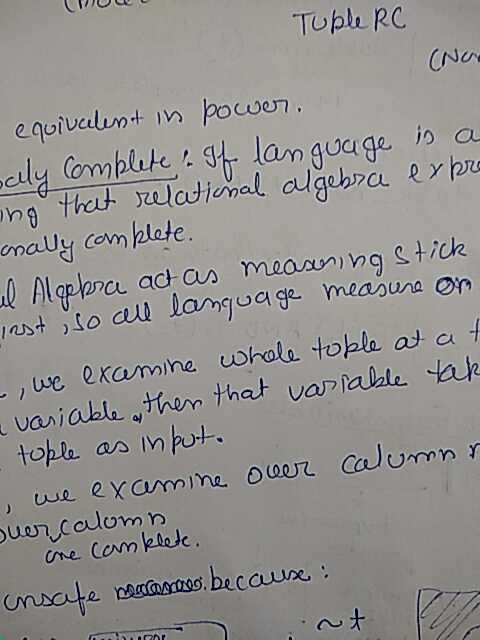 Tuple RC
equivalent in power.
Complete : If language is a
that relational algebra
complete.
Algebra act as measuring stick
, so all language measure on
, we examine whole tuple at a
variable, then that variable
tuple as input.
, we examine over calumn
over calumn
are complete.
unsafe because :
~t